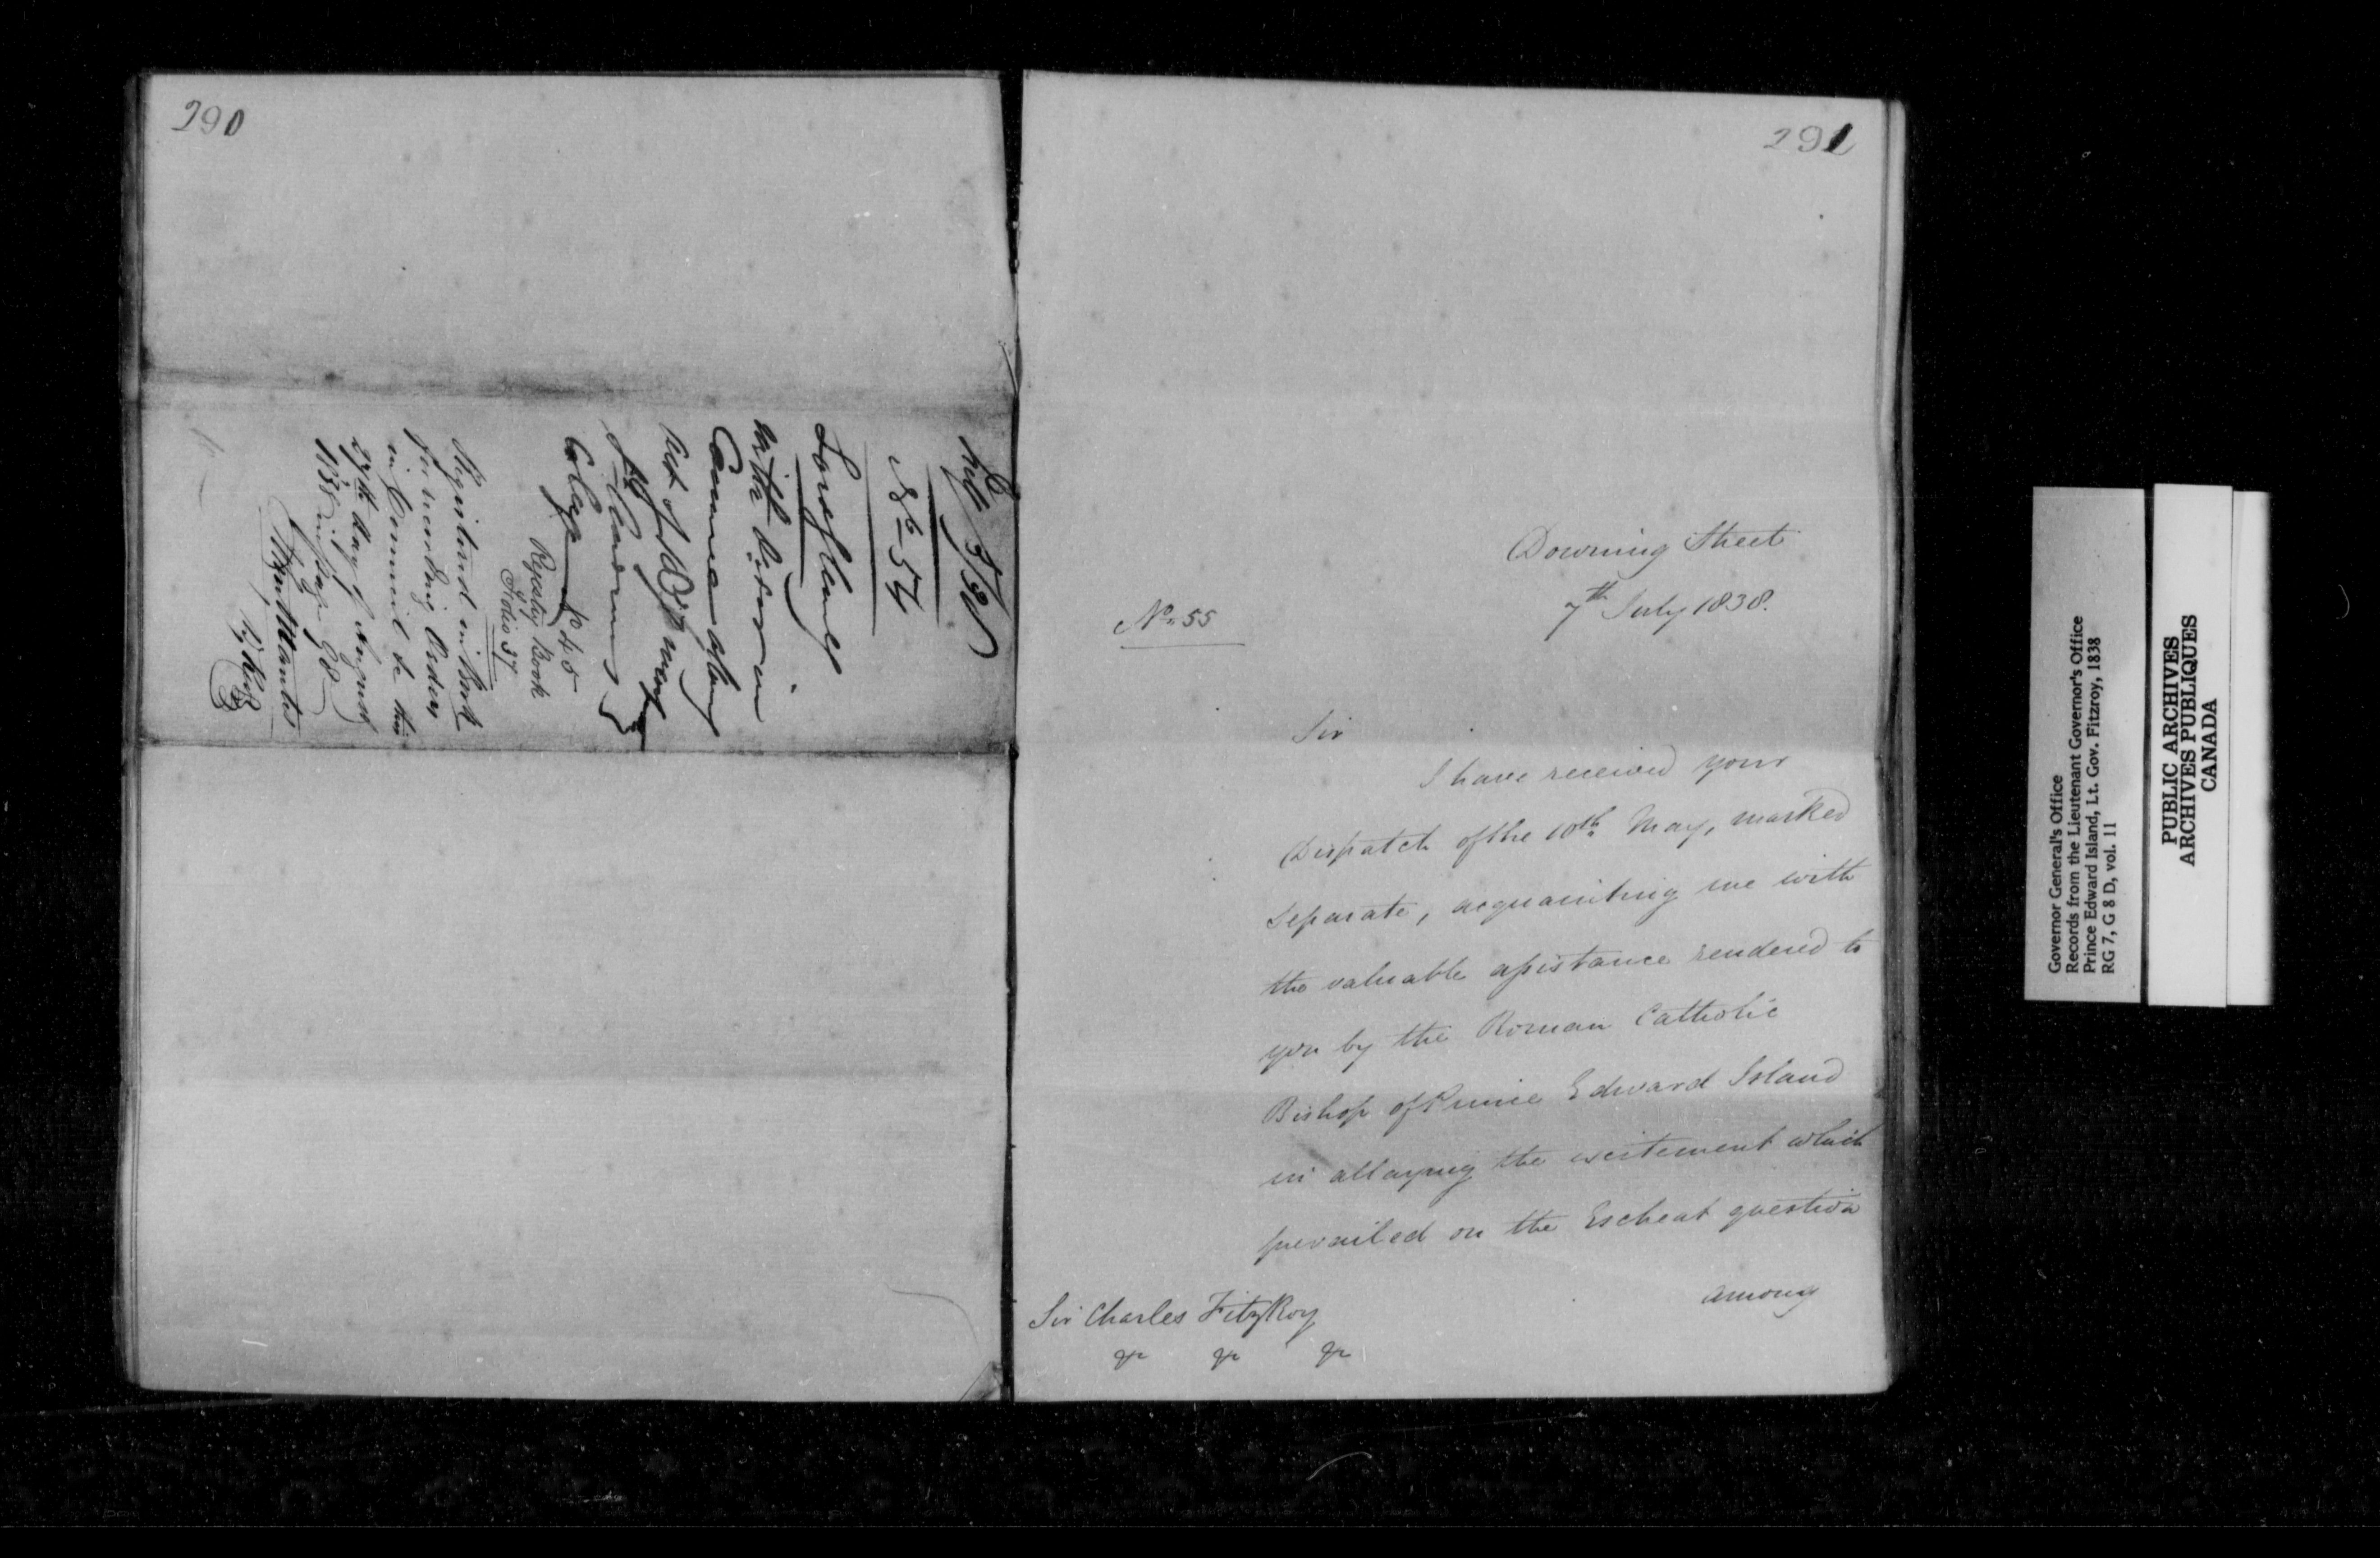 290
No 54
Lord Glenelg
with
Act of
College
P 45
Registry Book
Folio 37
Registered in Book
for recording Orders
in Council &c this
27th day of August
1838 in page 98
291
Downing Street
7th July 1838.
No. 55
Sir
I have received your
Dispatch of the 10th May, marked
Separate, acquainting me with
the valuable assistance rendered to
you by the Roman Catholic
Bishop of Prince Edward Island
in allaying the excitement which
prevailed on the Escheat question
among
Sir Charles FitzRoy
&c &c &c
Governor General's Office
Records from the Lieutenant Governor's Office
Prince Edward Island, Lt. Gov. Fitzroy, 1838
RG 7, G 8 D, vol. 11
PUBLIC ARCHIVES
ARCHIVES PUBLIQUES
CANADA